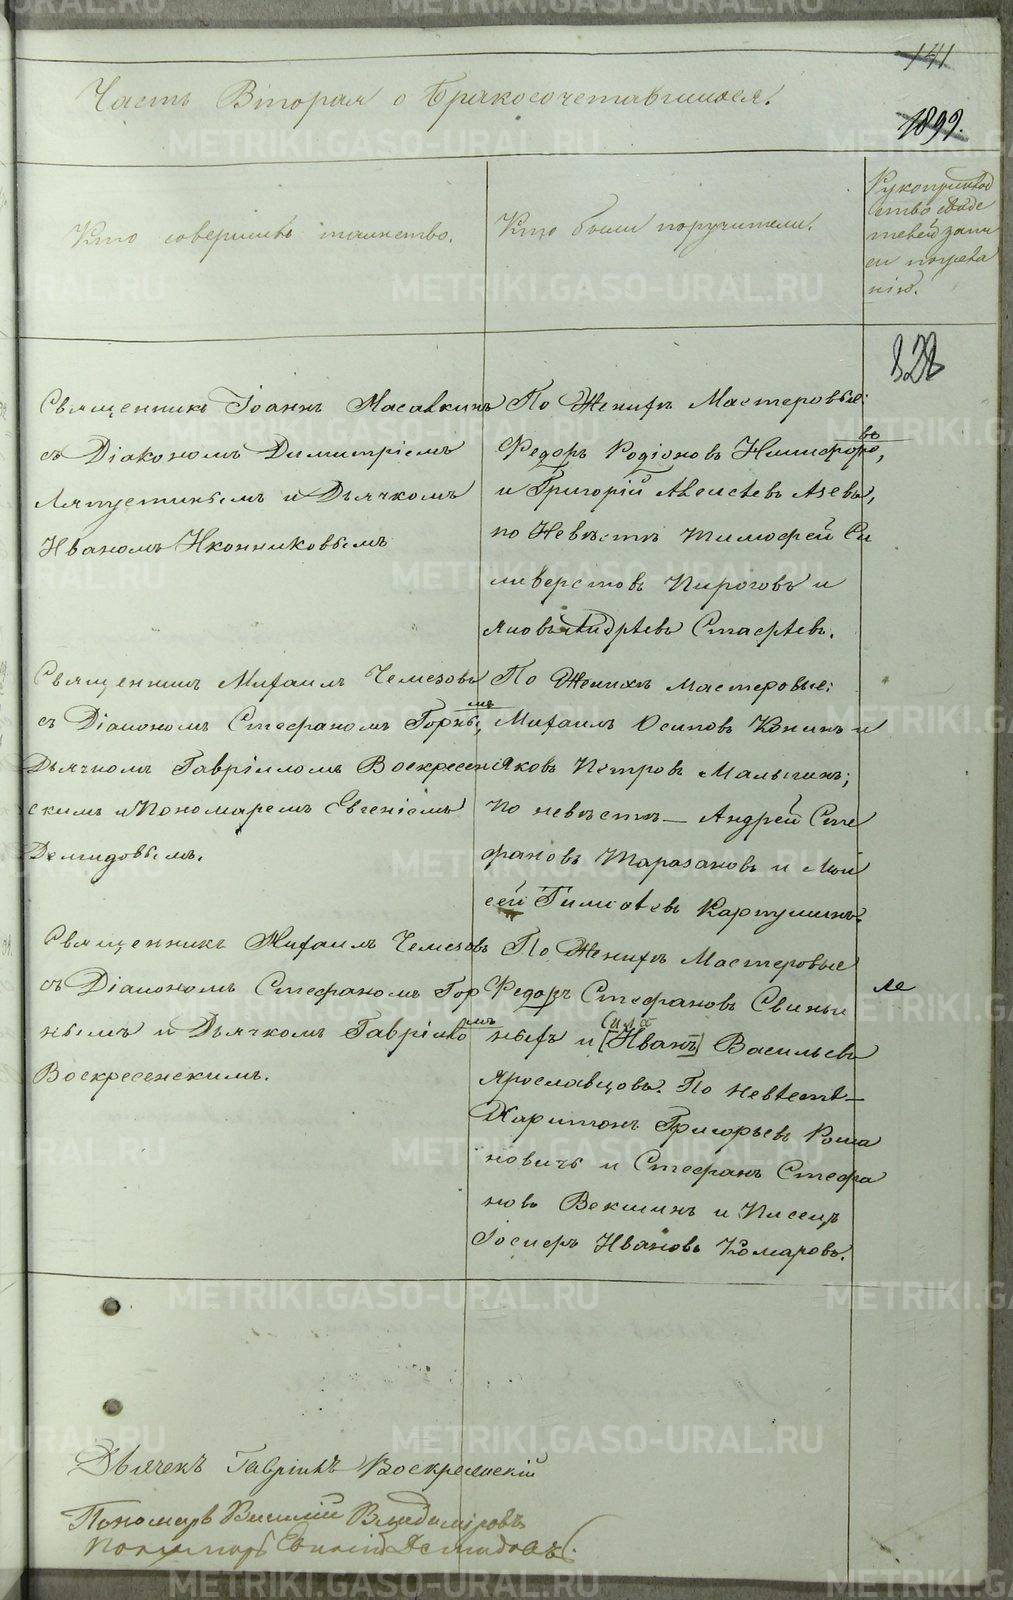 Часть Вторая о Бракосочетавшихся.
141
1899.
Кто совершилъ таинство.
Кто были поручители.
Рукоприклад
ство свиде
телей запи
си по жела
нію.
328
Священникъ Іоаннъ Масалкинъ
съ Діакономъ Димитріемъ
Ляпустинымъ и Дьячкомъ
Иваномъ Иконниковымъ
По Женихѣ Мастеровые:
Федоръ Родіоновъ Никифоровъ,
и Григорій Алексѣевъ Азевъ,
по Невѣстѣ Тимофей Си
ливерстовъ Пироговъ и
Яковъ Андрѣевъ Стафѣевъ.
Священникъ Михаилъ Чемезовъ
съ Діакономъ Стефаномъ Горнымъ,
Дьячкомъ Гавріиломъ Воскресен
скимъ и Пономаремъ Евгеніемъ
Демидовымъ.
По Женихѣ Мастеровые:
Михаилъ Осиповъ Конинъ и
Яковъ Петровъ Малыгинъ;
по невѣстѣ — Андрей Сте
фановъ Таразановъ и Мои
сей Тимоѳеевъ Карпушинъ.
Священникъ Михаилъ Чемезовъ
съ Діакономъ Стефаномъ Гор
нымъ и Дьячкомъ Гавріиломъ
Воскресенскимъ.
По Женихѣ Мастеровые
Федоръ Стефановъ Свинь
ныхъ и (Иванъ) Васильевъ
Ярославцовъ. По невѣстѣ —
Харитонъ Григорьевъ Рома
новичъ и Стефанъ Стефа
новъ Векшинъ и Писецъ
Іосифъ Ивановъ Комаровъ.
Дьячекъ Гавріилъ Воскресенскій
Пономарь Василій Владиміровъ
Пономарь Евгеній Демидовъ.
METRIKI.GASO-URAL.RU